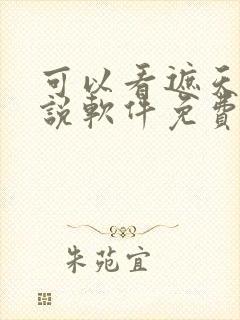 可以看遮天
說軟件免費
朱苑宜